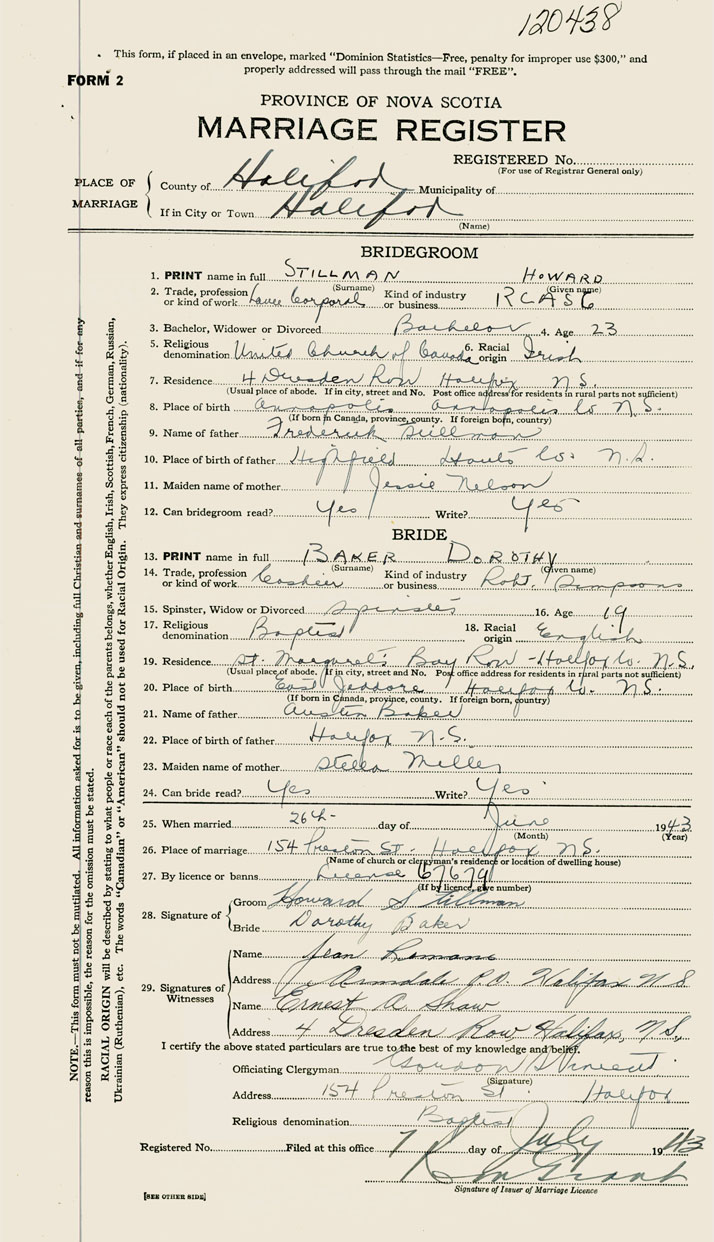 120438
This form, if placed in an envelope, marked "Dominion Statistics—Free, penalty for improper use $300," and
properly addressed will pass through the mail "FREE".
FORM 2
PROVINCE OF NOVA SCOTIA
MARRIAGE REGISTER
REGISTERED No.
(For use of Registrar General only)
PLACE OF MARRIAGE
County of Halifax Municipality of
If in City or Town Halifax
(Name)
BRIDEGROOM
1. PRINT name in full STILLMAN HOWARD
(Surname) (Given name)
2. Trade, profession or kind of work Lance Corporal Kind of industry or business RCASC
3. Bachelor, Widower or Divorced Bachelor 4. Age 23
5. Religious denomination United Church of Canada 6. Racial origin Irish
7. Residence 4 Dresden Row Halifax N.S.
(Usual place of abode. If in city, street and No. Post office address for residents in rural parts not sufficient)
8. Place of birth Annapolis Annapolis Co N.S.
(If born in Canada, province, county. If foreign born, country)
9. Name of father Frederick Stillman
10. Place of birth of father Highfield Hants Co. N.S.
11. Maiden name of mother Jessie Nelson
12. Can bridegroom read? Yes Write? Yes
BRIDE
13. PRINT name in full BAKER DOROTHY
(Surname) (Given name)
14. Trade, profession or kind of work Cashier Kind of industry or business Robt. Simpsons
15. Spinster, Widow or Divorced Spinster 16. Age 19
17. Religious denomination Baptist 18. Racial origin English
19. Residence St. Margaret's Bay Row - Halifax Co. N.S.
(Usual place of abode. If in city, street and No. Post office address for residents in rural parts not sufficient)
20. Place of birth East Jeddore Halifax Co. N.S.
(If born in Canada, province, county. If foreign born, country)
21. Name of father Austin Baker
22. Place of birth of father Halifax N.S.
23. Maiden name of mother Stella Miller
24. Can bride read? Yes Write? Yes
25. When married 26th day of June 1943
(Month) (Year)
26. Place of marriage 154 Preston St. Halifax N.S.
(Name of church or clergyman's residence or location of dwelling house)
27. By licence or banns License 67679
(If by licence, give number)
28. Signature of
Groom Howard S Stillman
Bride Dorothy Baker
29. Signatures of Witnesses
Name Jean
Address Armdale P.O. Halifax N S
Name Ernest A Shaw
Address 4 Dresden Row Halifax, N.S.,
I certify the above stated particulars are true to the best of my knowledge and belief.
Officiating Clergyman Gordon Vincent
(Signature)
Address 154 Preston St. Halifax
Religious denomination Baptist
Registered No. Filed at this office 7 day of July 1943
Grant
Signature of Issuer of Marriage Licence
[SEE OTHER SIDE]
NOTE.—This form must not be mutilated. All information asked for is to be given, including full Christian and surnames of all parties, and if for any
reason this is impossible, the reason for the omission must be stated.
RACIAL ORIGIN will be described by stating to what people or race each of the parents belongs, whether English, Irish, Scottish, French, German, Russian,
Ukrainian (Ruthenian), etc. The words "Canadian" or "American" should not be used for Racial Origin. They express citizenship (nationality).